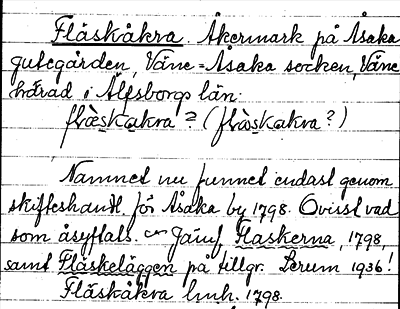 Fläskåkra. Åkermark på Åsaka
gutegården, Väne=Åsaka socken, Väne
härad i Älfsborgs län.
flæ̀skakra? (flæ̀skakra?)
Namnet nu funnet endast genom
skifteshandl. för Åsaka by 1798. Ovisst vad
som åsyftats. Jämf Flaskerna, 1798,
samt Fläskeläggen på tillgr. Lerum 1936!
Fläskåkra lmh. 1798.